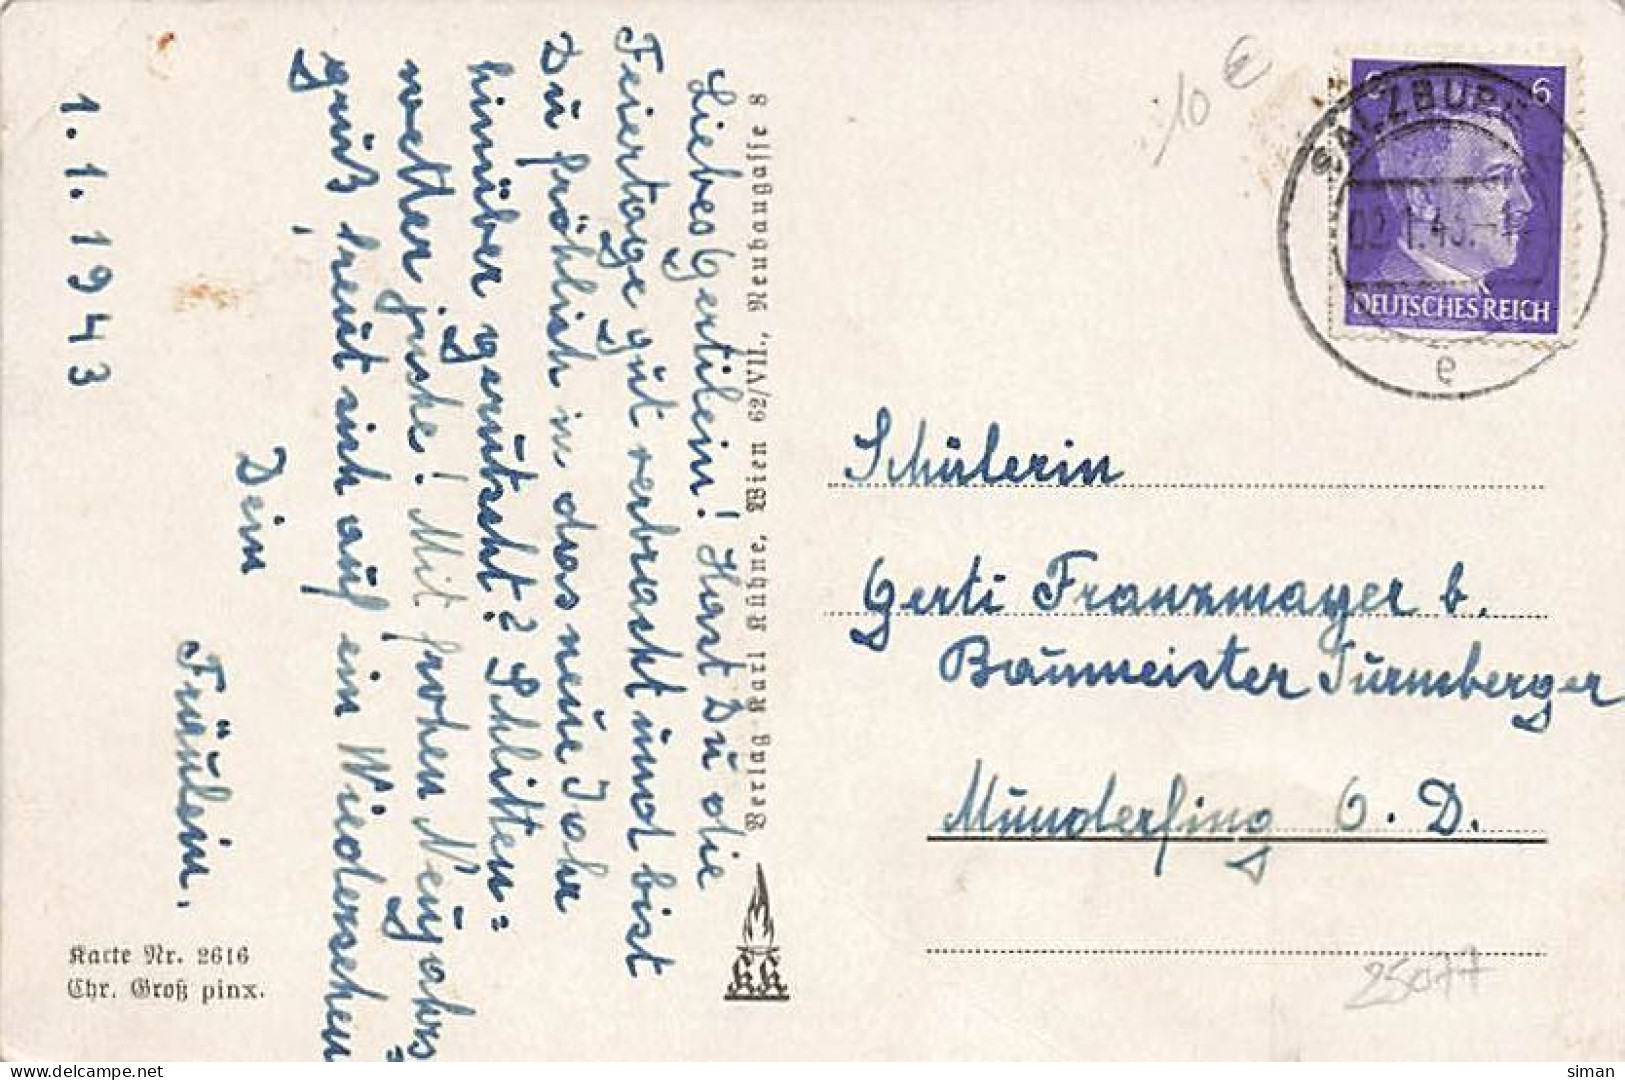 Liebes Gertilein! Hast Du die
Feiertage gut verbracht und bist
Du fröhlich in das neue Jahr
hinüber gerutscht? Schlitten=
wetter juche! Mit frohen Neujahrs
gruß freut sich auf ein Wiedersehen
Dein
Fräulein.
1.1.1943
Karte Nr. 2616
Chr. Groß pinx.
Verlag Karl Kühne, Wien 62/VII., Neubaugasse 8
KK
10 €
6 6
DEUTSCHES REICH
SALZBURG
e
Schülerin
Gerti Franzmayer b.
Baumeister Turmberger
Munderfing O.D.
25077
siman